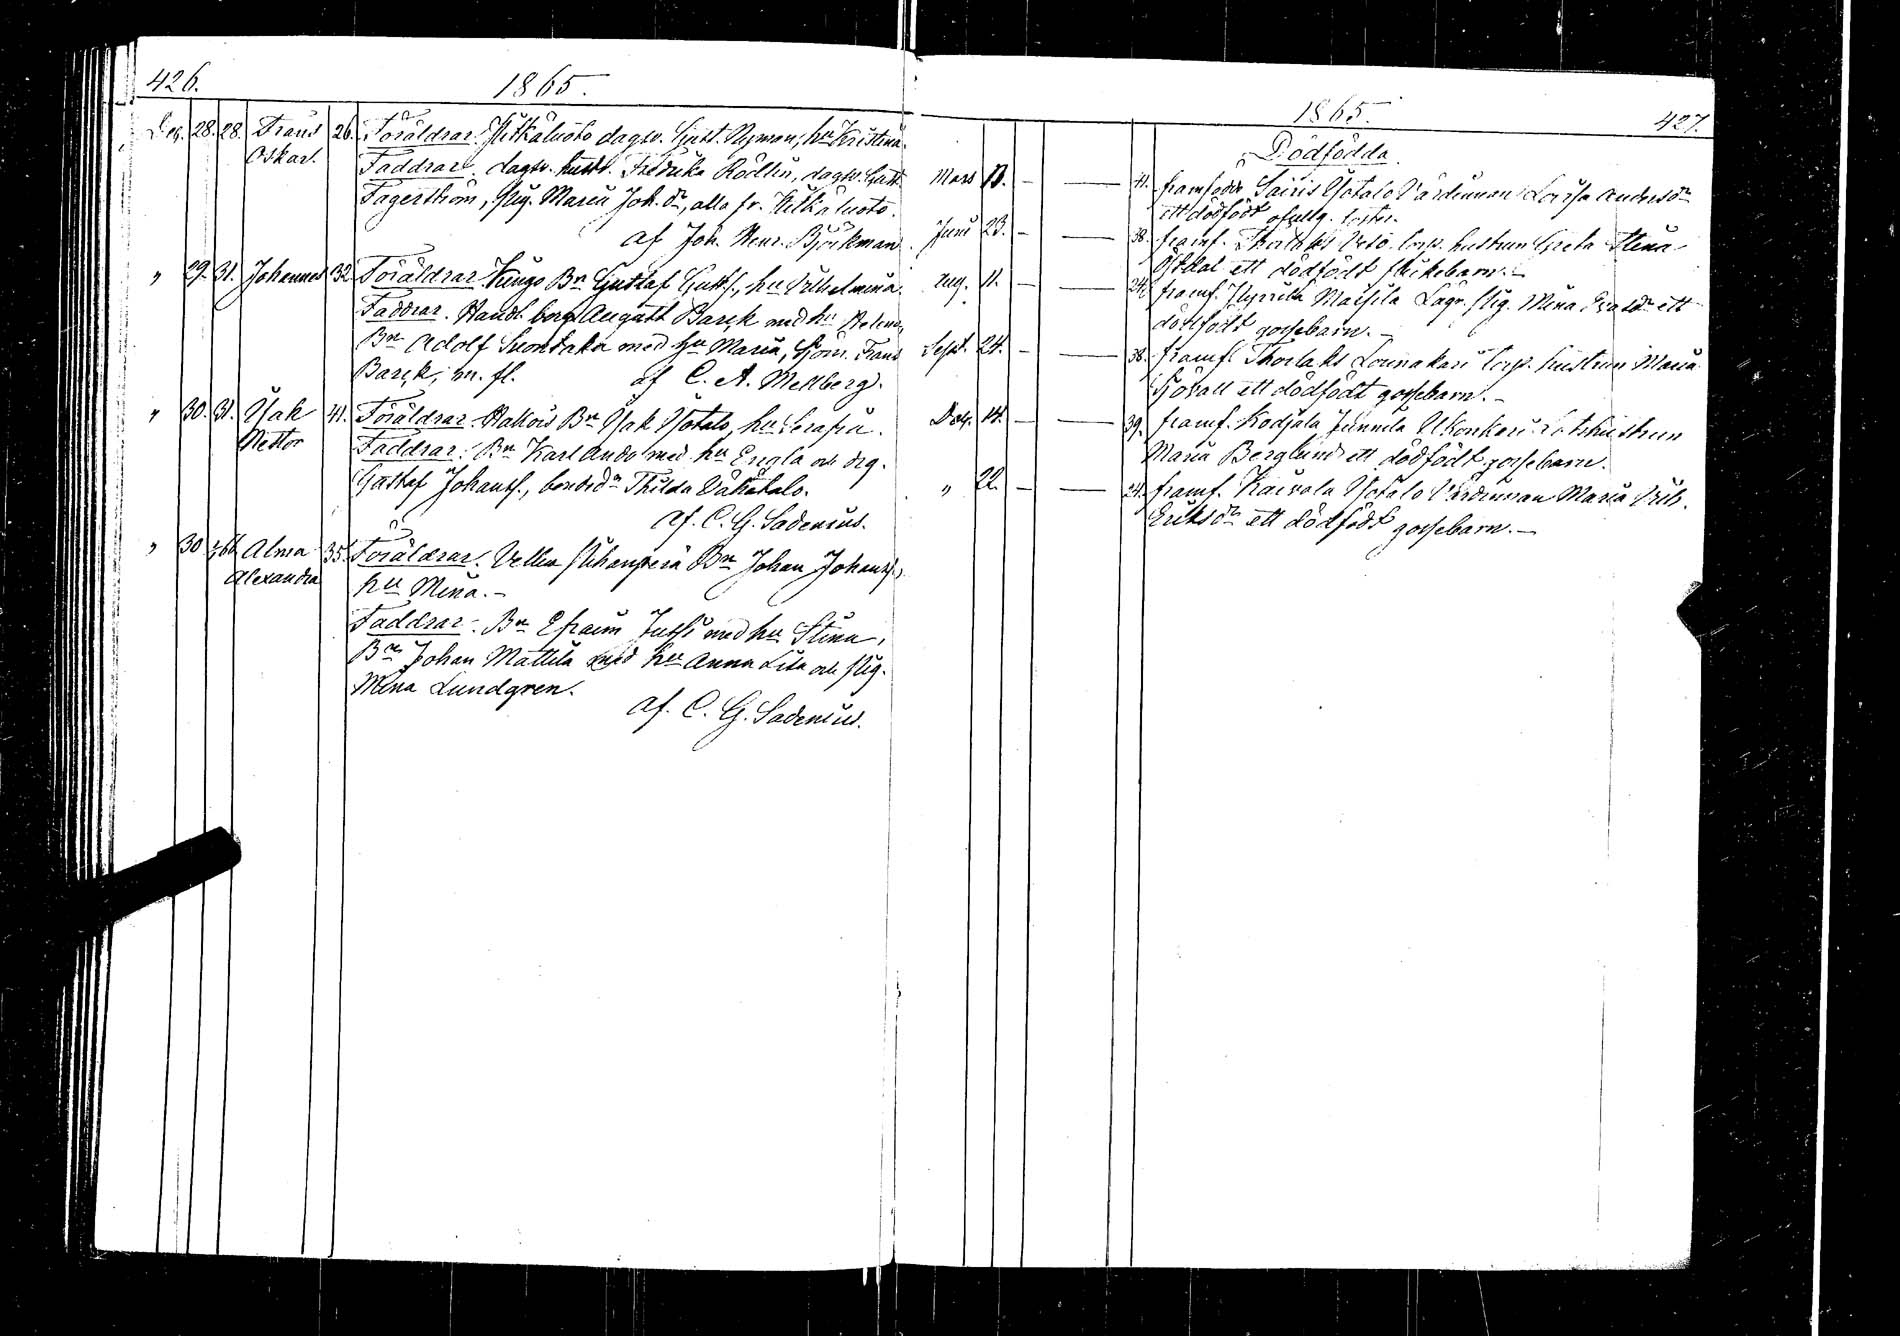 426.
1865.
Dec. 28. 28. Frans 26. Föräldrar. Pitkäluoto dagsv. Gust. Nyman, hu Kristina.
Oskar. Faddrar. dagsv. hustr. Fredrika Rödlin, dagsv. Gust.
Fagerström, pig. Maria Joh. dr, alla fr. Pitkäluoto.
af Joh. Henr. Björkman.
" 29. 31. Johannes 32. Föräldrar. Bn Gustaf Gustfs., hu Vilhelmina.
Faddrar. Handl. borg. August Barck med hu Helena,
Bn Adolf Suontaka med hu Maria, Frans
Barck, m. fl. af C. A. Mellberg.
" 30. 31. Isak 41. Föräldrar. Bn Isak Isotalo, hu Serafia.
Nestor Faddrar. Bn Karl med hu Engla och drg.
Gustaf Johansf., bondedr Thilda Vähätalo.
af. C. G. Sadenius.
" 30 Alma 35. Föräldrar. Bn Johan Johansf.,
Alexandra hu Mina.-
Faddrar. Bn Efraim med hu Stina,
Bn Johan Mattila med hu Anna Lisa och pig.
Mina Lundgren.
af. C. G. Sadenius.
1865.
427.
Dödfödda.
Mars 11. - — 41. framfödde Sairis Isotalo Värdinnan Lovisa Andersdr
ett dödfödt ofullg. foster.
Juni 23. - — 38. framf. Thorlaks torp. hustrun Greta Stina
ett dödfödt flickebarn.-
Aug. 11. - — 24. framf. pig. Mina ett
dödfödt gossebarn.-
Sept. 24. - — 38. framf. Thorlaks Lounakari torp. hustrun Maria
ett dödfödt gossebarn.-
Dec. 14. - — 39. framf. Kodjala Junnila Lotshustrun
Maria Berglund ett dödfödt gossebarn.
" 22. - — 24. framf. Kaivola Isotalo Värdinnan Maria Vilh.
Eriksdr ett dödfödt gossebarn.-